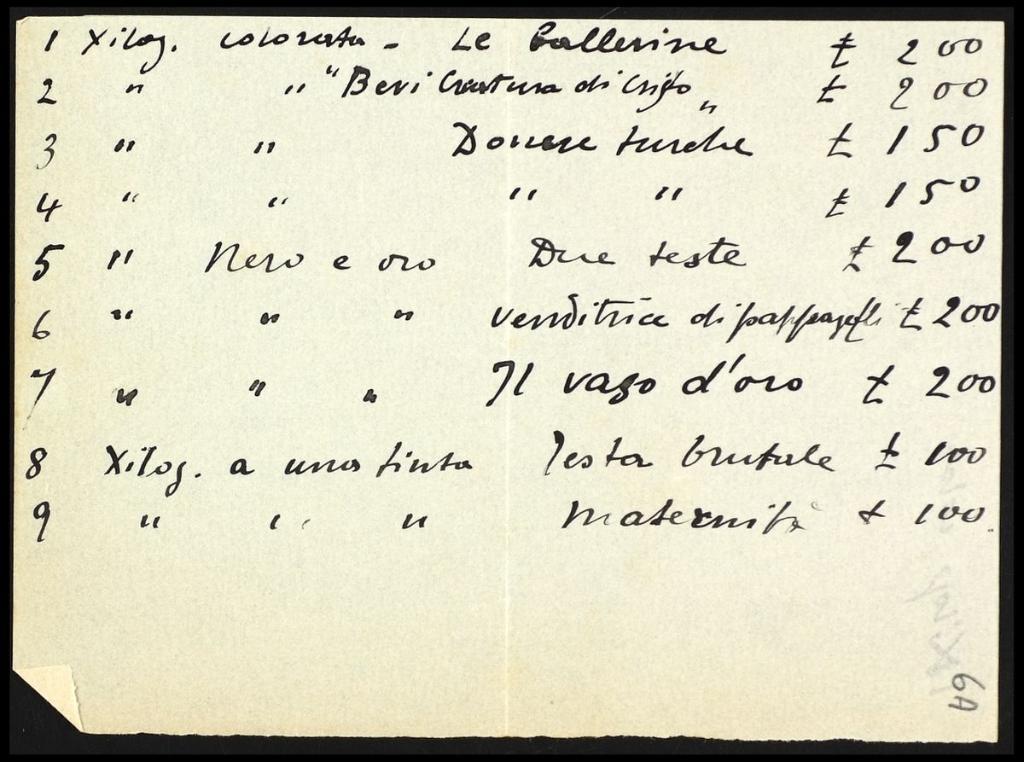 1 Xilog. colorata - Le ballerine £ 200
2 " " "Bevi Creatura di Crifo" £ 200
3 " " Donne turche £ 150
4 " " " " £ 150
5 " Nero e oro Due teste £ 200
6 " " " venditrice di pappagalli £ 200
7 " " " Il vaso d'oro £ 200
8 Xilog. a una tinta Testa brutale £ 100
9 " " " Maternità £ 100.
6A